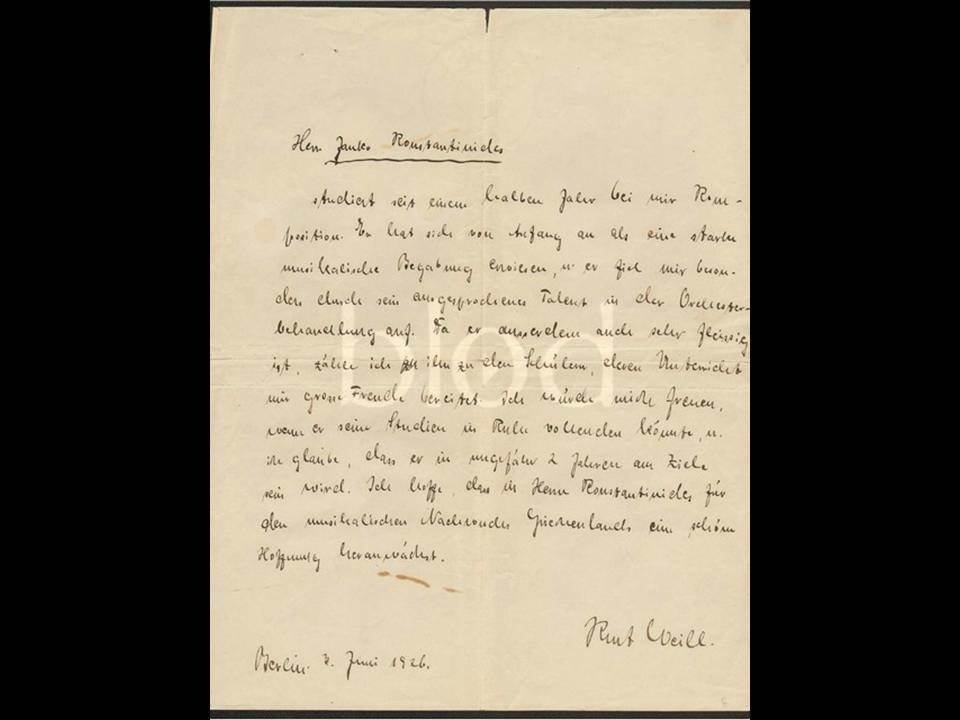 Herr Janko Konstantinides
studiert seit einem halben Jahr bei mir Kom-
position. Er hat sich von Anfang an als eine starke
musikalische Begabung erwiesen, u. er fiel mir beson-
ders durch sein ausgesprochenes Talent in der Orchester-
behandlung auf. Da er ausserdem auch sehr fleissig
ist, zähle ich ihn zu den Schülern, deren Unterricht
mir grosse Freude bereitet. Ich würde mich freuen,
wenn er seine Studien in Ruhe vollenden könnte, u.
ich glaube, dass er in ungefähr 2 Jahren am Ziele
sein wird. Ich hoffe, dass in Herrn Konstantinides für
den musikalischen Nachwuchs Griechenlands eine schöne
Hoffnung heranwächst.
Kurt Weill.
Berlin Juni 1926.
blod